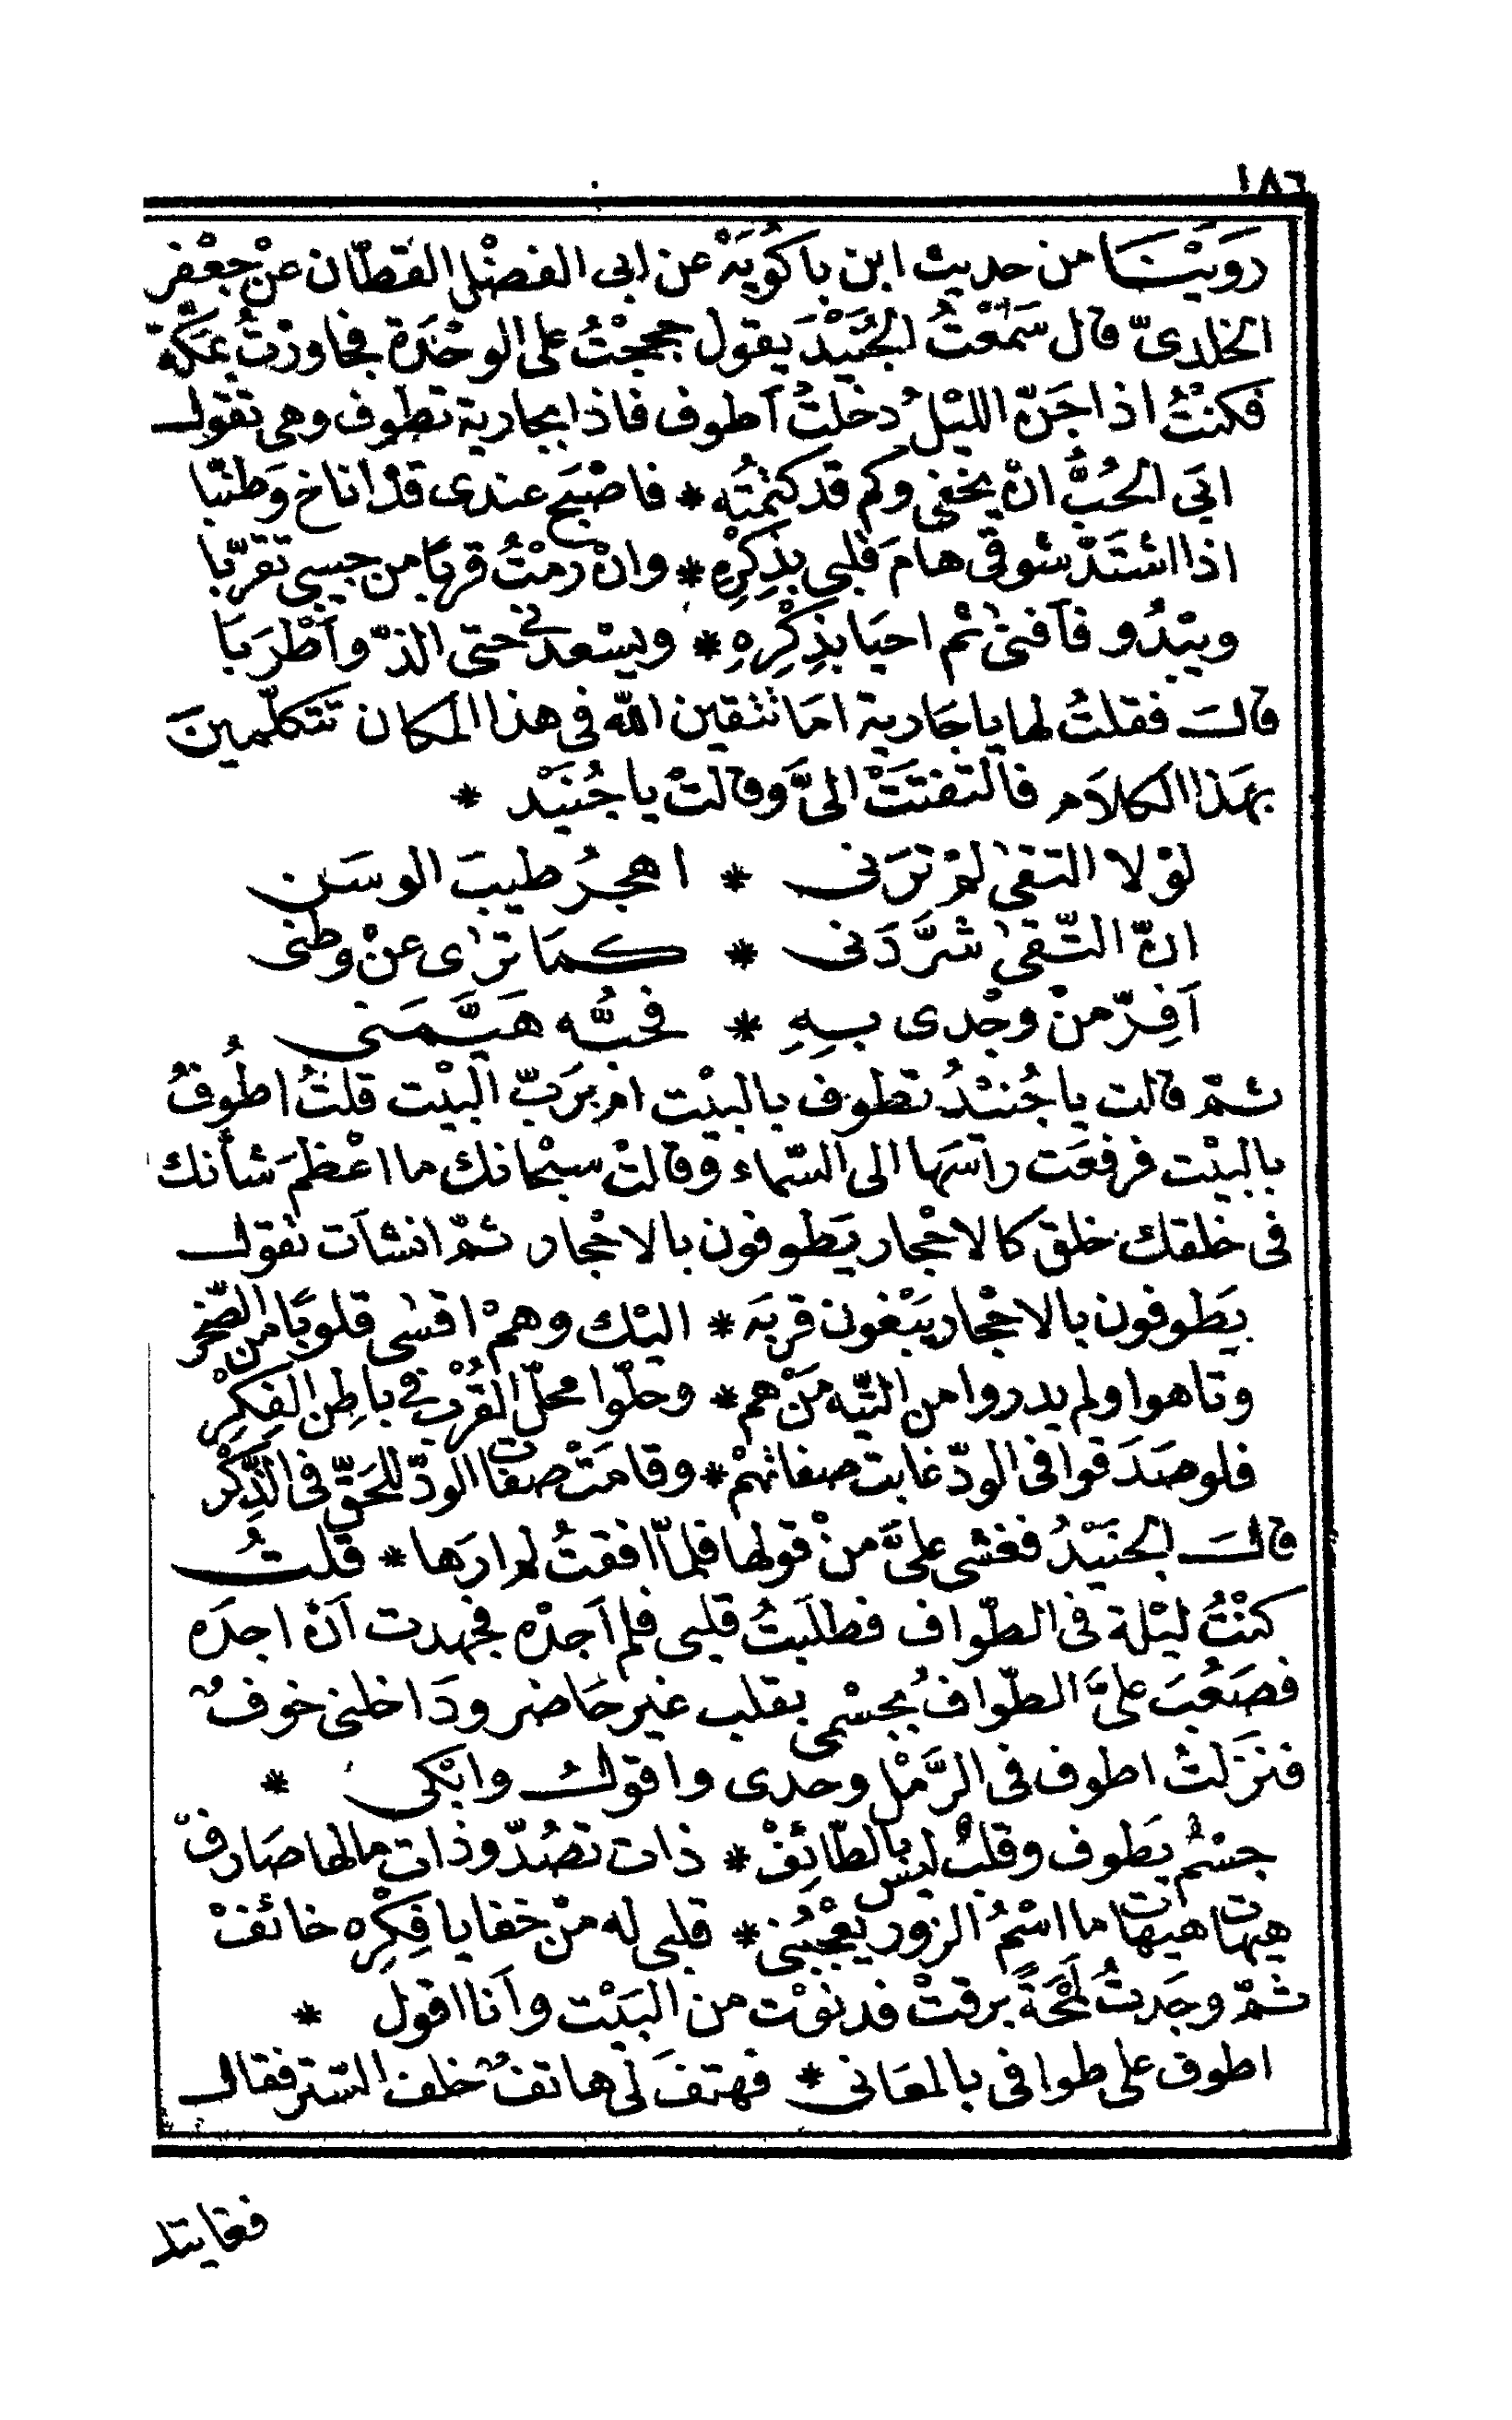 ١٨٦
رَوَيْنَا من حديث ابن باكُوَيَهْ عن ابى الفضْل القطّان عنْ جعْفر
الخلدىّ قال سَمعْتُ الجُنَيْدَ يقول حججْتُ على الوحْدَة فجاورْتُ بمَكّة
فكنْتُ اذا جَنّ الليْلُ دخلتُ أطوف فاذا بجارية تطوف وهى تقول
ابَى الحُبُّ انْ يخفى وكم قد كتمْتُه * فاصْبَح عندى قدْ اناخ وَطنّبا
اذا اشتَدّ شوقى هامَ قلبى بذِكِرْهِ * وانْ رمْتُ قربًا من حبيبى تقرّبا
ويبْدُو فأفنىٰ ثم احيَا بذِكْرِهِ * ويسْعدنى حتى الذّ وأطْرَبَا
قالت فقلتُ لها يا جَارية امَا تتقين الله فى هذا المَكان تتكلّمينَ
بهَذا الكلاَم فالتفتَتْ الىَّ وقالتْ يا جُنَيْد *
لوْلا التقىٰ لمْ ترَنى * اهجرُ طيبَ الوسَن
انّ التّقىٰ شرَّدَنى * كمَا ترٰى عنْ وطنى
أفِرّ منْ وجْدى بهِ * فحُبُّه هَيَّمَنى
ثمّ قالت يا جُنيْدُ تطوف بالبيْت ام برَبّ البيْت قلتُ اطُوفُ
بالبيْت فرفعَت رأسَها الى السّماء وقالتْ سبْحانك ما اعْظمَ شأنك
فى خلقك خلق كالاحْجار يَطوفون بالاحْجار ثمّ انشأت تقول
يَطوفون بالاحْجار يَبْغون قربَة * اليْك وهمْ اقسٰى قلوبًا من الصّخر
وتاهوا ولم يدروا من التّيه مَنْ هم * وحلّوا محلّ القُرْب فى باطِن الفِكِرْ
فلو صَدَقوا فى الودّ غابت صفاتهمْ * وقامَتْ صفات الودّ للحَقّ فى الذِّكْر
قالَ الجنَيْدُ فغشى علىَّ منْ قولها فلمّا افقتُ لم ارَها * قلتُ
كنْتُ ليْلة فى الطّواف فطلَبتُ قلبى فلم أجدْه فجهدت أنْ اجدَه
فصَعُبَ علىَّ الطّوافُ بجسْمى بقلب غير حَاضر ودَاخلنى خوفٌ
فنَزَلتُ اطوف فى الرَّمْل وحدى واقول وابْكى *
جسْمٌ يَطوف وقلبٌ ليس بالطّائِفْ * ذات تصُدّ وذات مالها صَارفّ
هيهات هيهات ما اسْمُ الزور يعْجبُنى * قلبى له منْ خفايا فِكِرْه خائفْ
ثمّ وجَدتُ لَمْحَةً برقتْ فدنوْت من البَيْت وأنا اقول *
اطوف على طوافى بالمعَانى * فهتفَ لى هاتفٌ خلف السّتر فقال